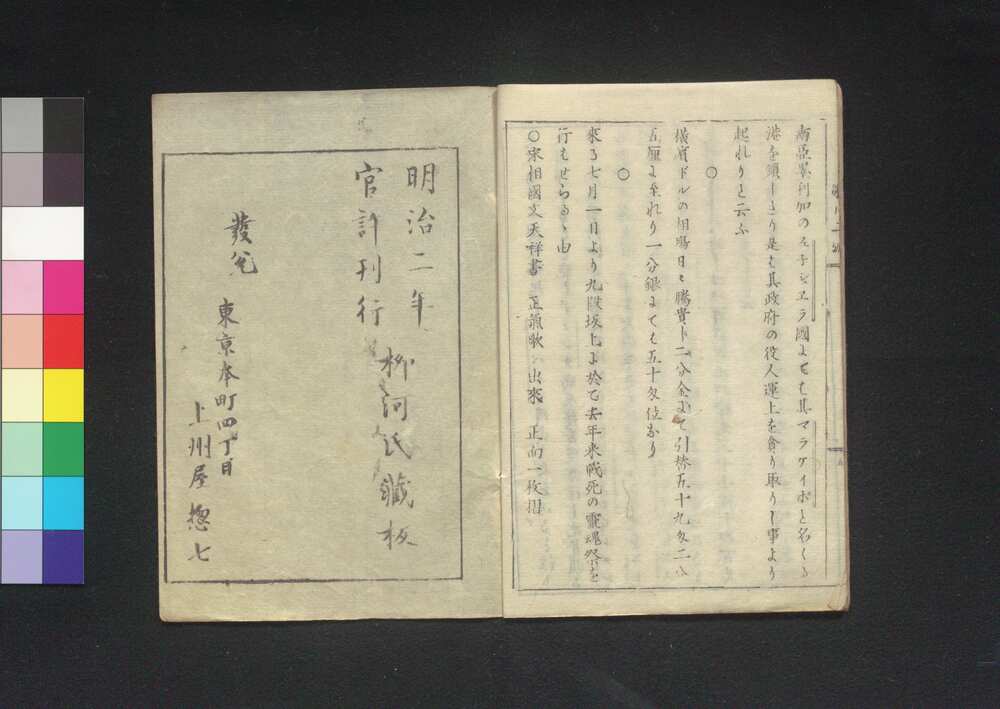 南亞墨利加のヱネシユヱラ國よても其マラケイボと名くる
港を鎖したり是も其政府の役人運上を貪り取りし事より
起れりと云ふ
○
橫濱ドルの相塲日々騰貴し二分金よて引替五十九匁二八
五厘よ至れり一分銀よても五十匁位なり
○
來る七月一日より九段坂上よ於て去年来戦死の靈魂祭を
行もせらるゝ由
○宋相國文天祥書 正氣歌 出來 正面一枚摺
明治二年
官許刊行 柳河氏藏板
發兌 東京本町四丁目
上州屋惣七